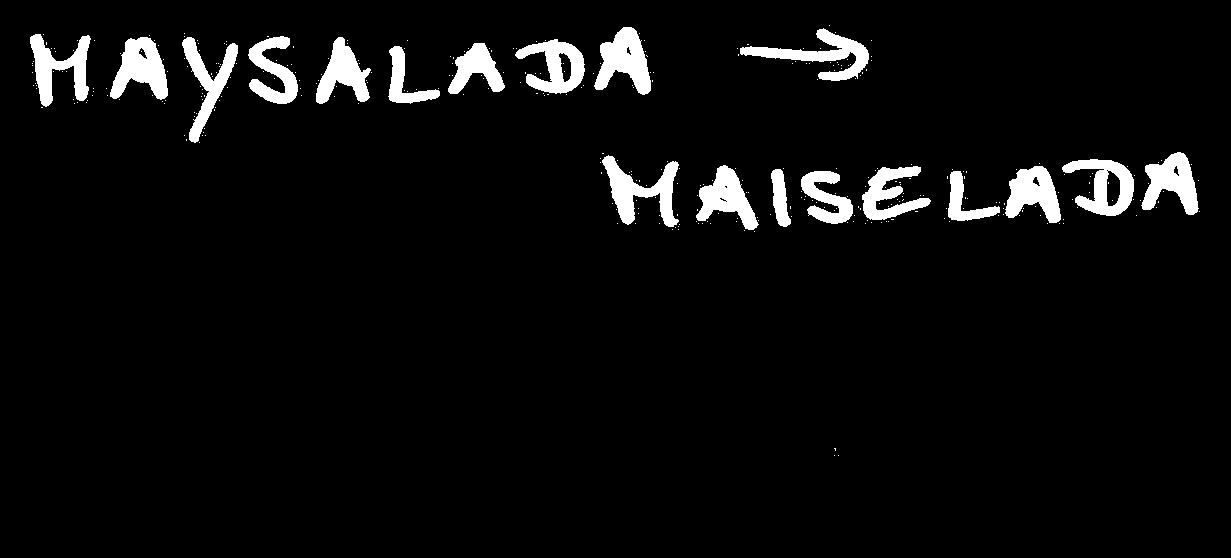 MAYSALADA →
MAISELADA